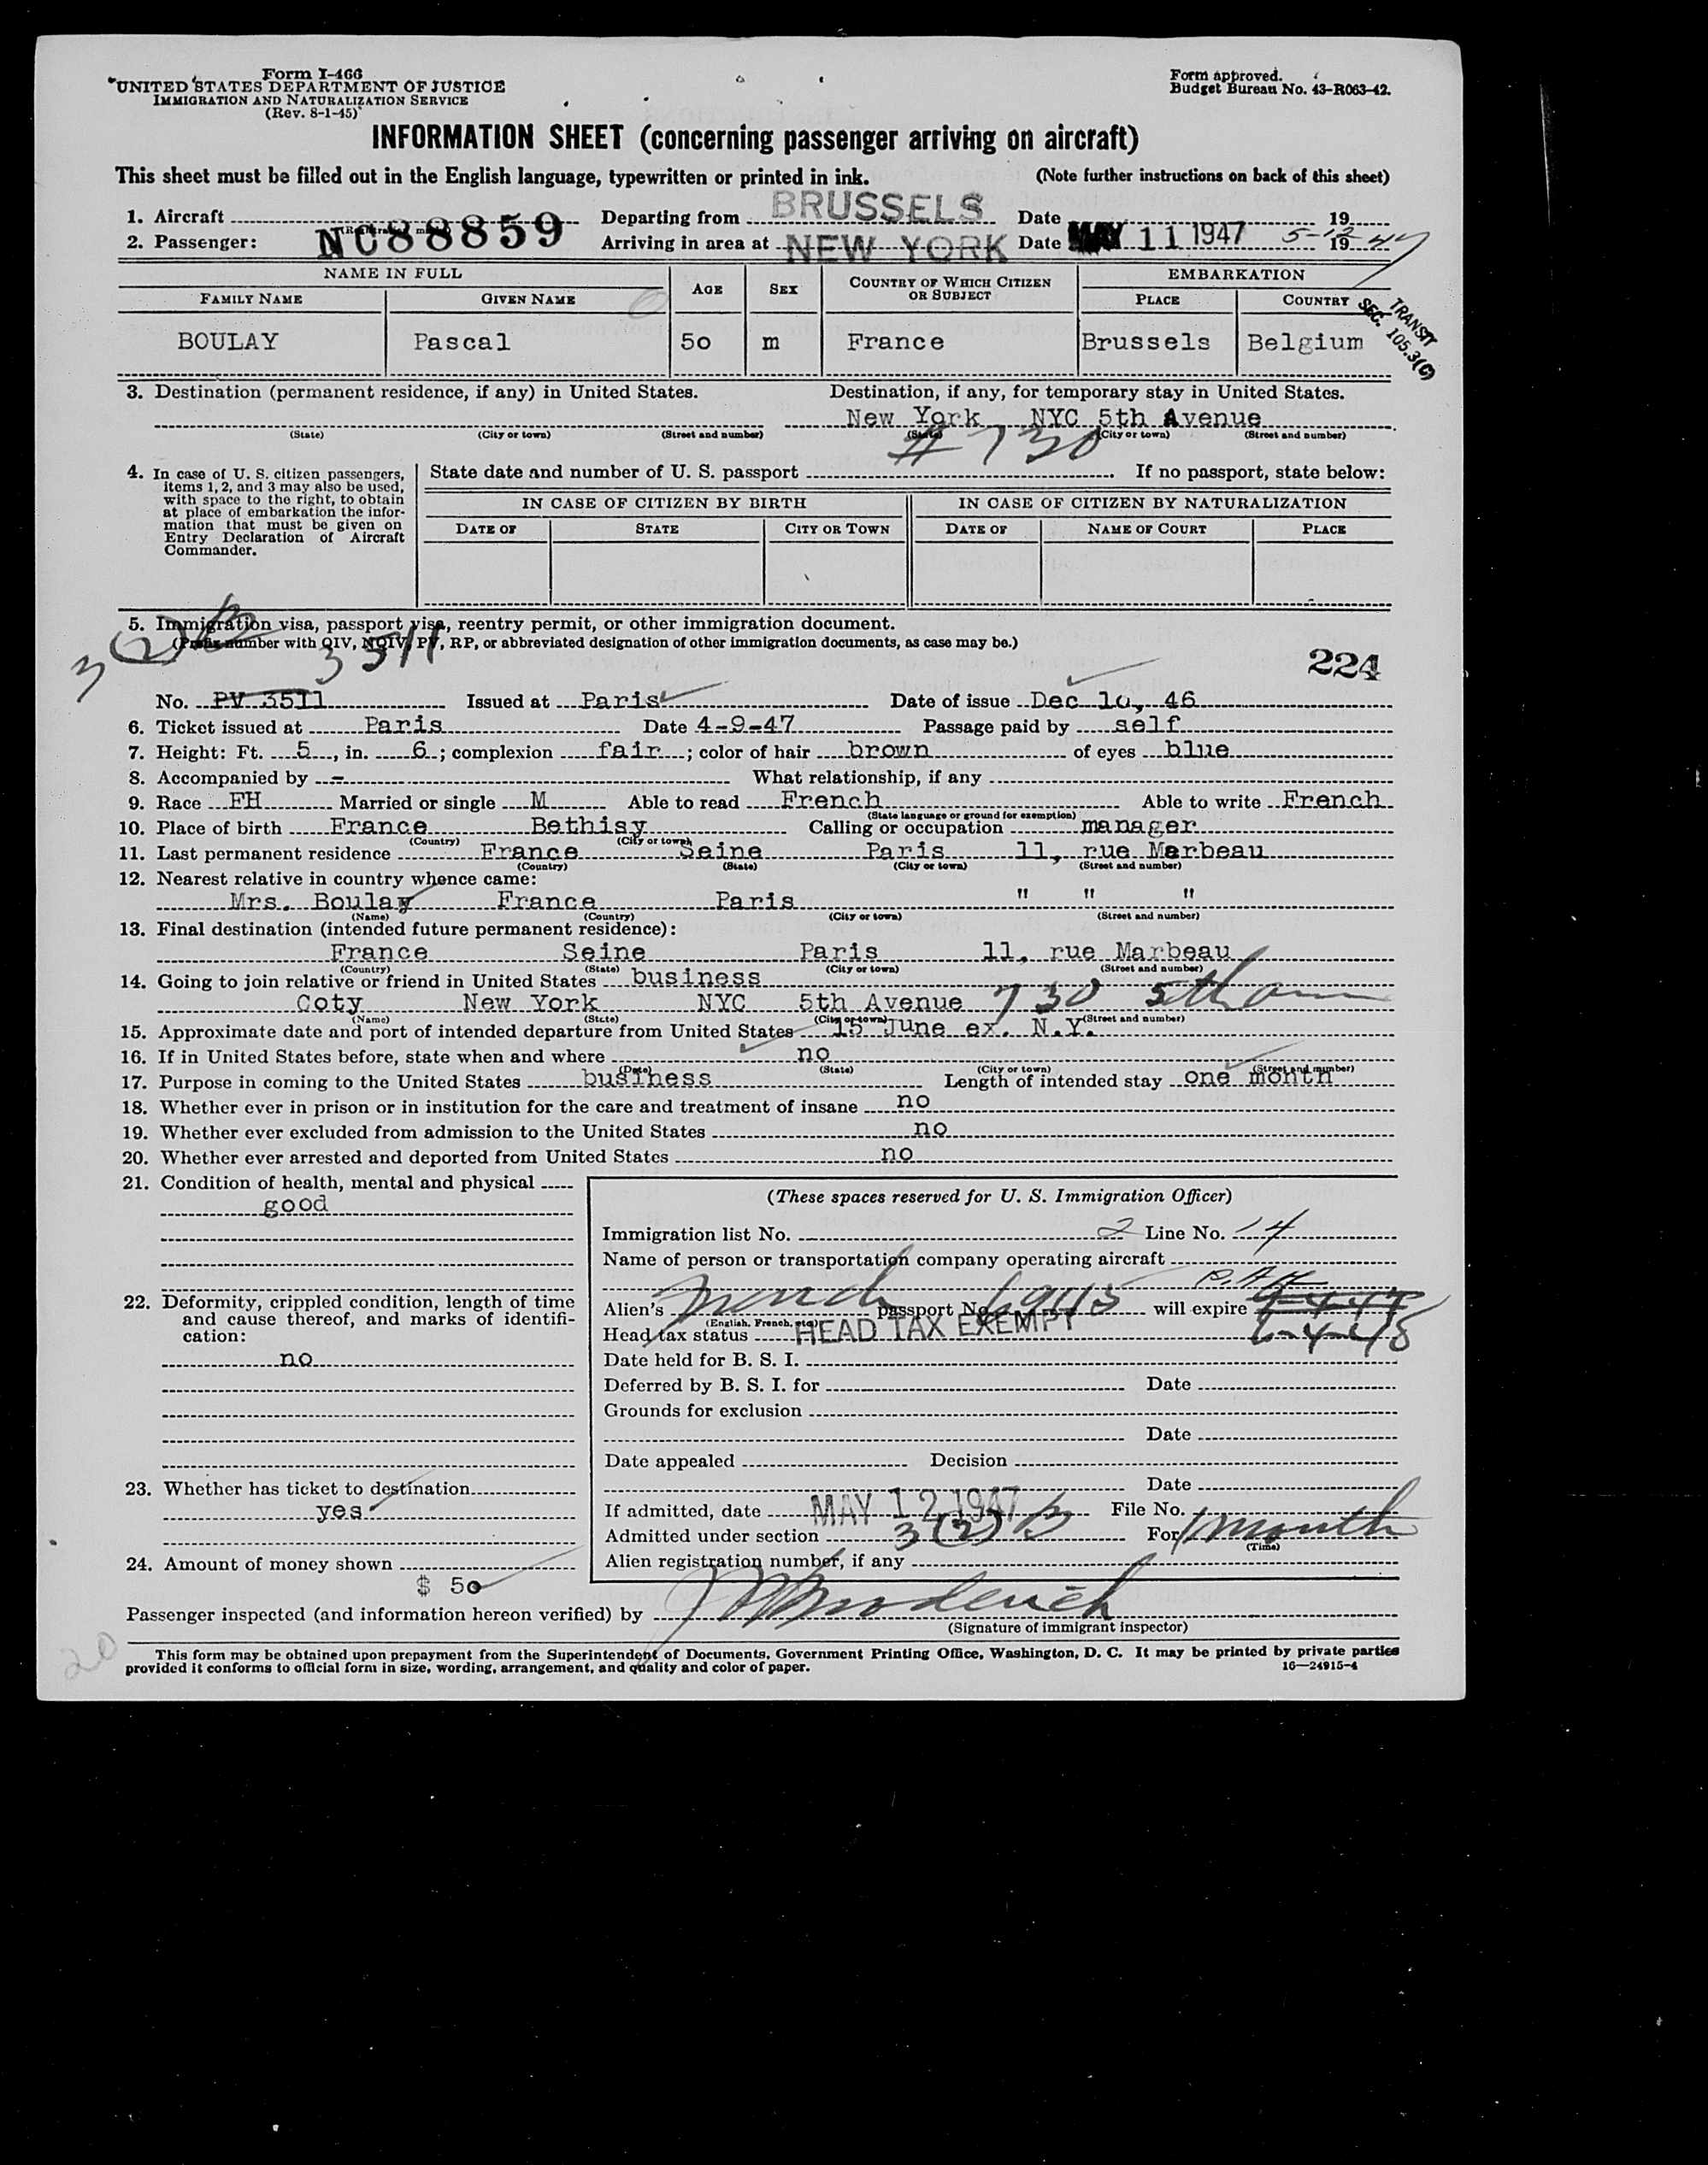 Form I-466
UNITED STATES DEPARTMENT OF JUSTICE
IMMIGRATION AND NATURALIZATION SERVICE
(Rev. 8-1-45)
Form approved.
Budget Bureau No. 43-R063-42.
INFORMATION SHEET (concerning passenger arriving on aircraft)
This sheet must be filled out in the English language, typewritten or printed in ink. (Note further instructions on back of this sheet)
1. Aircraft NC88859 Departing from BRUSSELS Date 19
2. Passenger: Arriving in area at NEW YORK Date MAY 11 1947 5-12 1947
NAME IN FULL AGE SEX COUNTRY OF WHICH CITIZEN OR SUBJECT EMBARKATION
FAMILY NAME GIVEN NAME PLACE COUNTRY
TRANSIT
SEC. 105.3(C)
BOULAY Pascal 50 m France Brussels Belgium
3. Destination (permanent residence, if any) in United States. Destination, if any, for temporary stay in United States.
New York NYC 5th Avenue
(State) (City or town) (Street and number) (State) (City or town) (Street and number)
# 730
4. In case of U. S. citizen passengers, items 1, 2, and 3 may also be used, with space to the right, to obtain at place of embarkation the information that must be given on Entry Declaration of Aircraft Commander.
State date and number of U. S. passport If no passport, state below:
IN CASE OF CITIZEN BY BIRTH IN CASE OF CITIZEN BY NATURALIZATION
DATE OF STATE CITY OR TOWN DATE OF NAME OF COURT PLACE
5. Immigration visa, passport visa, reentry permit, or other immigration document.
(Prefix number with QIV, NQIV, PV, RP, or abbreviated designation of other immigration documents, as case may be.)
3 (2) B 3511
224
No. PV 3511 Issued at Paris Date of issue Dec 10, 46
6. Ticket issued at Paris Date 4-9-47 Passage paid by self
7. Height: Ft. 5, in. 6; complexion fair; color of hair brown of eyes blue
8. Accompanied by - What relationship, if any
9. Race FH Married or single M Able to read French Able to write French
(State language or ground for exemption)
10. Place of birth France Bethisy Calling or occupation manager
(Country) (City or town)
11. Last permanent residence France Seine Paris 11, rue Marbeau
(Country) (State) (City or town) (Street and number)
12. Nearest relative in country whence came:
Mrs. Boulay France Paris " " "
(Name) (Country) (City or town) (Street and number)
13. Final destination (intended future permanent residence):
France Seine Paris 11, rue Marbeau
(Country) (State) (City or town) (Street and number)
14. Going to join relative or friend in United States business
Coty New York NYC 5th Avenue 730 5th
(Name) (State) (City or town) (Street and number)
15. Approximate date and port of intended departure from United States 15 June ex. N.Y.
16. If in United States before, state when and where no
(Date) (State) (City or town) (Street and number)
17. Purpose in coming to the United States business Length of intended stay one month
18. Whether ever in prison or in institution for the care and treatment of insane no
19. Whether ever excluded from admission to the United States no
20. Whether ever arrested and deported from United States no
21. Condition of health, mental and physical
good
22. Deformity, crippled condition, length of time and cause thereof, and marks of identification:
no
23. Whether has ticket to destination
yes
24. Amount of money shown
$ 50
(These spaces reserved for U. S. Immigration Officer)
Immigration list No. 2 Line No. 14
Name of person or transportation company operating aircraft
Alien's French passport No. 69115 will expire 6-4-48
(English, French, etc.)
Head tax status HEAD TAX EXEMPT
Date held for B. S. I.
Deferred by B. S. I. for Date
Grounds for exclusion
Date
Date appealed Decision
Date
If admitted, date MAY 12 1947 File No.
Admitted under section 3(2) B For 1 month
(Time)
Alien registration number, if any
Passenger inspected (and information hereon verified) by
(Signature of immigrant inspector)
20
This form may be obtained upon prepayment from the Superintendent of Documents, Government Printing Office, Washington, D. C. It may be printed by private parties
provided it conforms to official form in size, wording, arrangement, and quality and color of paper. 16—24915-4